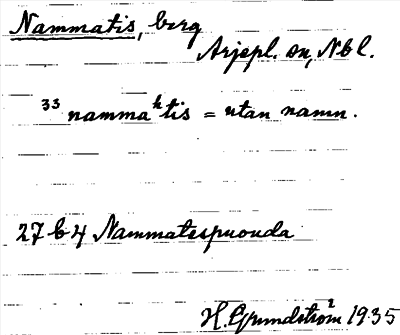 Nammatis, berg
Arjepl. sn, Nbl.
33 nammaᵏtis = utan namn.
27 b 4 Nammatespuouda
H. Grundström 1935